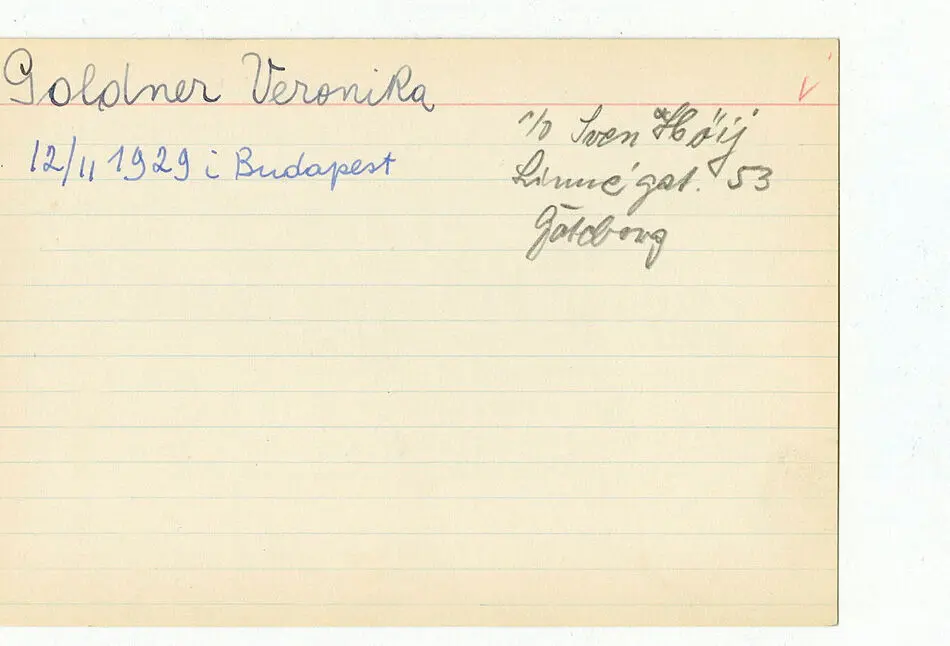 Goldner Veronika
12/11 1929 i Budapest
c/o Sven Höij
Linnégat. 53
Göteborg